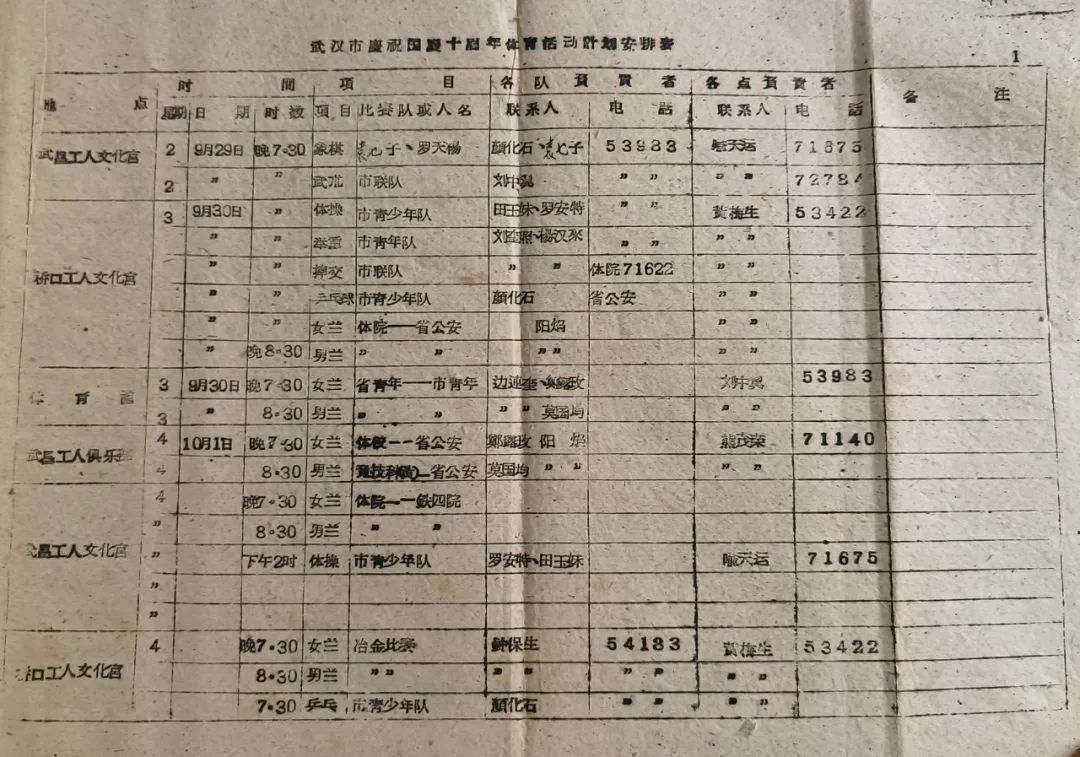 武汉市慶祝国慶十周年体育活动計划安排表
1
地点 时間 項目 各队負責者 各点負責者 备注
星期 日期 时数 項目 比賽队或人名 联系人 电話 联系人 电話
武昌工人文化宫 2 9月29日 晚7·30 象棋 袁七子、罗天楊 顏化石、袁七子 53983 天运 71675
2 〃 〃 武朮 市联队 刘中 〃 〃 72784
桥口工人文化宫 3 9月30日 〃 体操 市青少年队 田玉妹、罗安特 〃 〃 黃梅生 53422
〃 〃 举重 市青年队 、楊汉 〃 〃 〃 〃
〃 〃 摔交 市联队 〃 〃 体院71622 〃 〃
〃 〃 乒乓球 市青少年队 顏化石 省公安 〃 〃
〃 〃 女兰 体院——省公安 阳焰 〃 〃
〃 晚8·30 男兰 〃 〃 〃〃 〃 〃
体育舘 3 9月30日 晚7·30 女兰 省青年——市青年 边 53983
3 〃 8·30 男兰 〃 〃 〃 〃 莫国均 〃 〃
武昌工人俱乐部 4 10月1日 晚7·30 女兰 体校——省公安 鄭 阳焰 熊茂荣 71140
4 8·30 男兰 竞技科 —省公安 莫国均 〃 〃 〃 〃
4 晚7·30 女兰 体院——鉄四院
〃 8·30 男兰 〃 〃
武昌工人文化宫 〃 下午2时 体操 市青少年队 罗安特、田玉妹 天运 71675
〃
〃
桥口工人文化宫 4 晚7·30 女兰 冶金比賽 鈡保生 54183 黃梅生 53422
8·30 男兰 〃〃 〃 〃 〃 〃 〃 〃
7·30 乒乓 市青少年队 顏化石 〃 〃 〃 〃